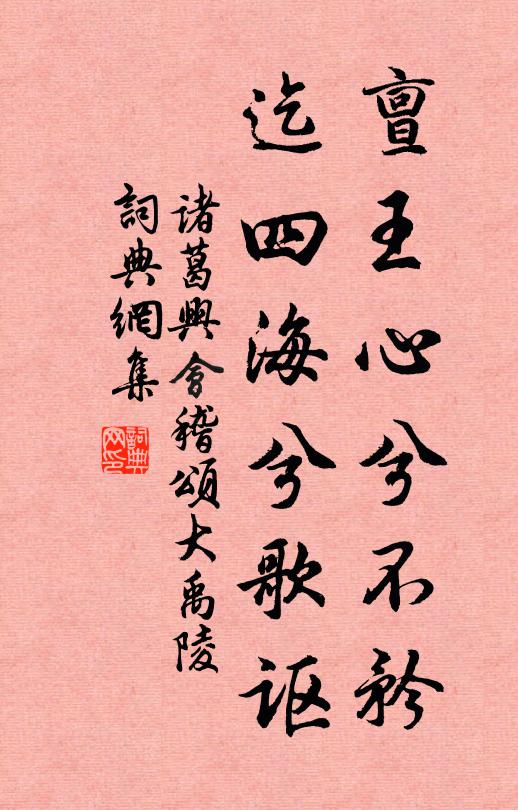 亶王心兮不矜
迄四海兮歌讴
诸葛興會稽頌大禹陵
詞典網集
詞典網印